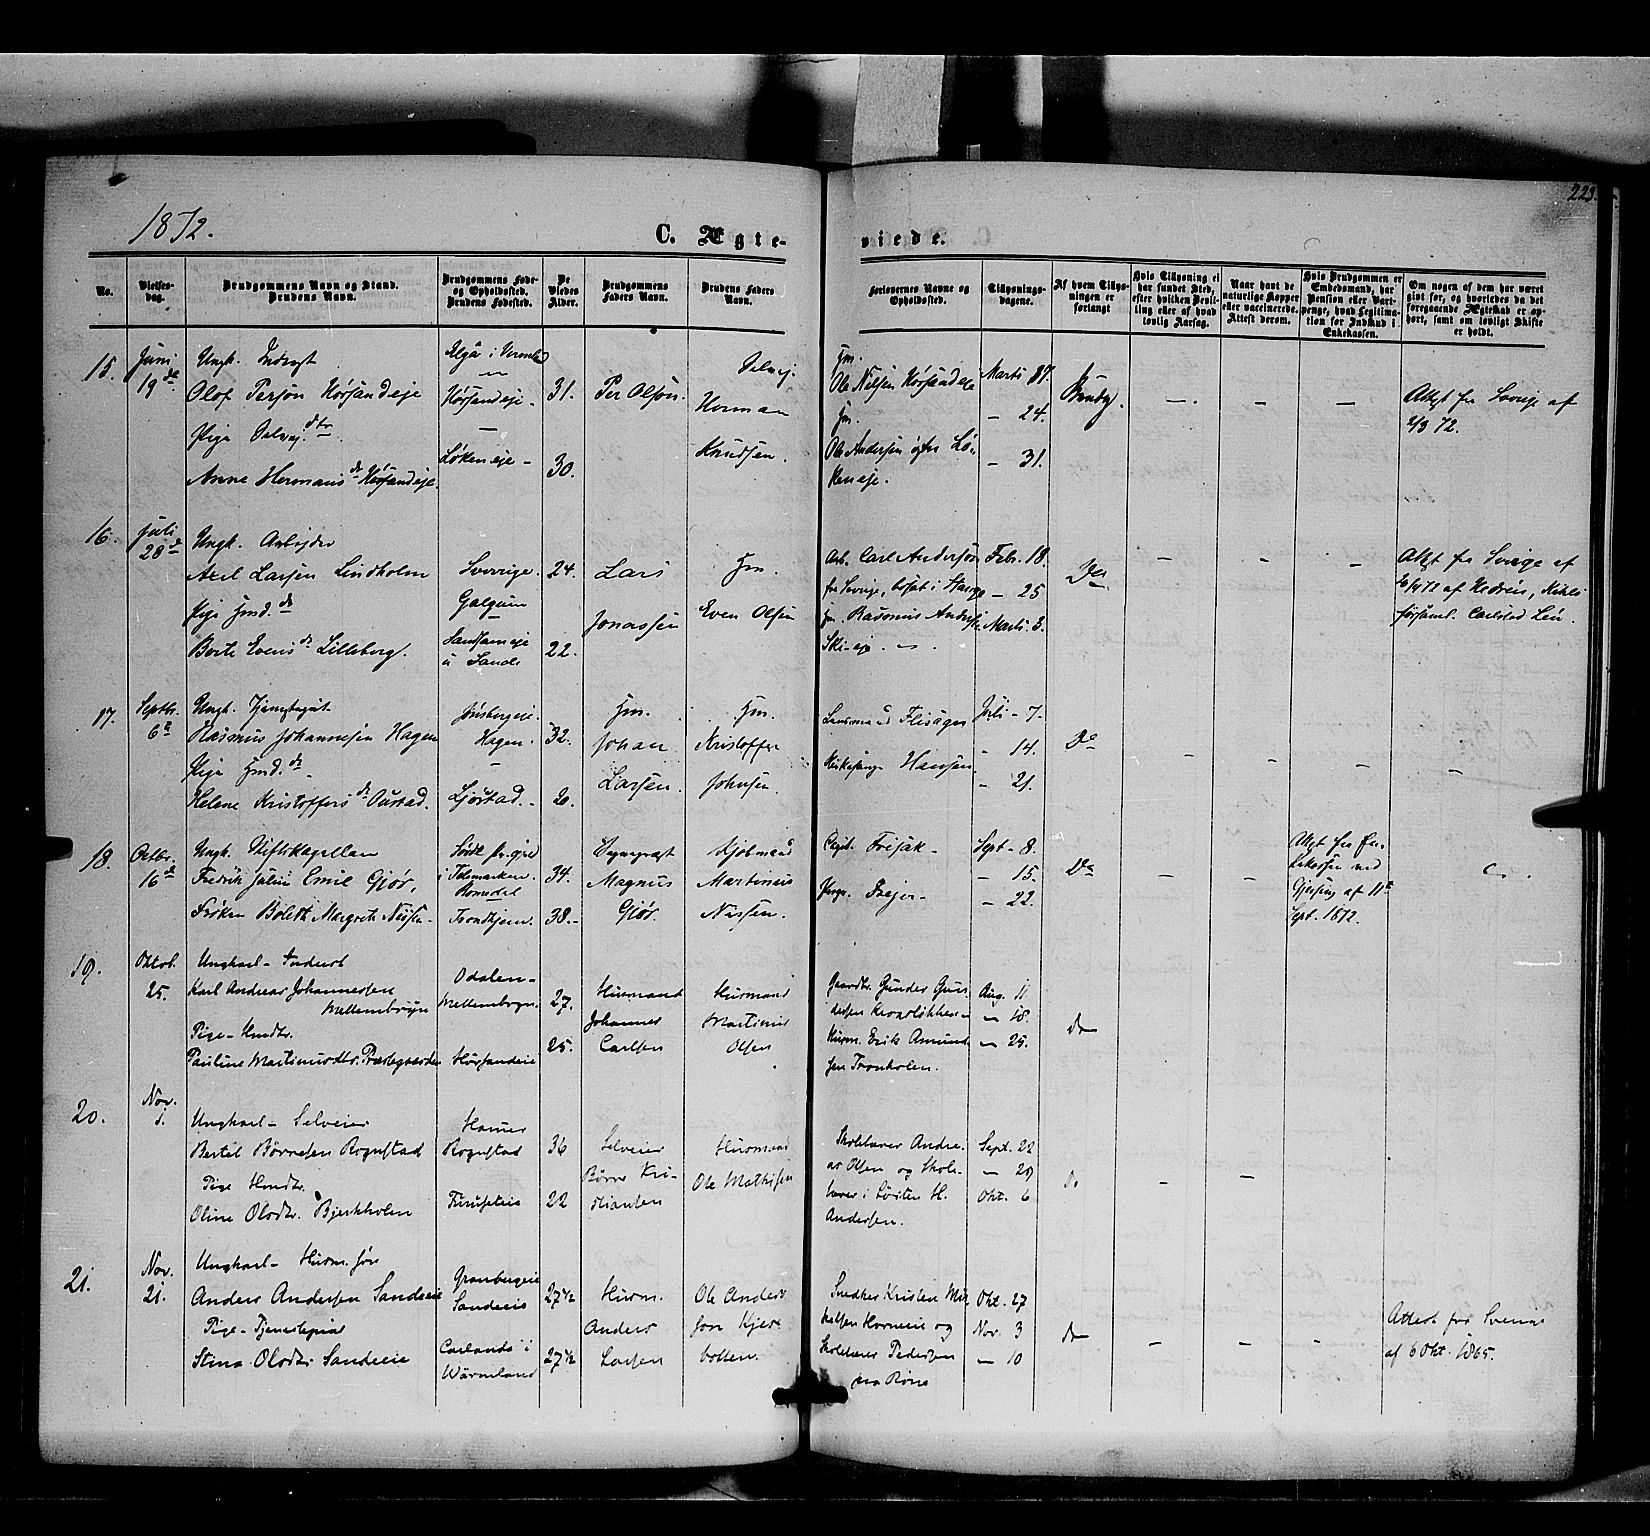 223.
1872.
C. Ægte-
viede.
No.
Vielses-
dag.
Brudgommens Navn og Stand.
Brudens Navn.
Brudgommens Føde-
og Opholdssted.
Brudens Fødested.
De
Viedes
Alder.
Brudgommens
Faders Navn.
Brudens Faders
Navn.
Forlovernes Navne og
Opholdssted.
Tillysnings-
dagene.
Af hvem Tillys-
ningen er
forlangt
Hvis Tillysning ei
har fundet Sted,
efter hvilken Bevil-
ling eller af hvad
lovlig Aarsag.
Naar havt de
naturlige Kopper
eller vaccinerede.
Attest derom.
Hvis Brudgommen er
Embedsmand, har
Pension eller Vart-
penge, hvad Legitima-
tion for Indskud i
Enkekassen.
Om nogen af dem har været
gift før, og hvorledes da det
foregaaende Ægteskab er op-
hørt, samt om lovligt Skifte
er holdt.
15.
Juni
19de
Ungk. Inderst
Olof Person Hørsandeje
Pige Selvej. dtr
Anne Hermansdr Hørsandeje.
Elgå i Vermland
Hørsandeje -
Løkeneje -
31.
30.
Per Olson.
Selvej.
Herman
Knudsen.
Hm.
Ole Nilsen Hørsandeje
Hm.
Ole Andersen Lø-
keneje.
Marts
- 24.
- 31.
Brudg.
Attest fra Sverige af
72.
16.
Juli
28de
Ungk. Arbejder
Axel Larsen Lindholm
Pige Hmd. dr
Berte Evensdr Lilleberg.
Sverrige.
Sandsameje
24.
22.
Lars
Jonassen
Hm.
Even Olsen
Arb. Carl Andersen
fra Sverige, bosat i Stange
Hm. Rasmus Anders
Ski-eje.
Febr. 18.
- 25
Marts 3.
Do
Attest fra Sverige af
Carlstad Len.
17.
Septbr.
6te
Ungk. Tjenestegut
Rasmus Johannesen Hagen
Pige Hmd. dr
Helene Kristoffersdr Oustad.
Jønsbergeje.
Hagen.
Ljøstad.
32.
20.
Hm.
Johan
Larsen.
Hm.
Kristoffer
Johnsen.
Lensmand Flisager
Kirkesanger Hansen
Juli - 7.
- 14.
- 21.
Do
18.
Octbr.
16de
Ungk. Stiftskapellan
Fredrik Julius Emil Gjør,
Frøken Boleth Margrete Nissen
i Telemarken.
Romedal
Trondhjem.
34.
38.
Sogneprest
Magnus
Gjør.
Kjøbmand
Martinus
Nissen.
Capt. Frisak -
Sept. 8.
- 15.
- 22.
Do
Attest fra En-
kekassen
af 11te
Sept. 1872.
19.
Oktob.
25.
Ungkarl - Inderst
Karl Andreas Johannessen
Mellembryn
Pige - Hmdtr.
Pauline Martinusdtr. Præstegaarden
Odalen -
Mellembryn.
Hørsandeie
27.
25.
Husmand
Johannes
Carlsen
Husmand
Martinus
Olsen
Gaardbr. Gunder Gun-
dersen Kronsløkken -
Husm. Erik Amund-
sen Tronholen.
Aug. 11
- 18.
- 25.
do
20.
Nov.
1.
Ungkarl - Selveier
Bertel Børresen Rognstad
Pige Hmdtr.
Oline Olsdtr. Bjerkholen
Hamer
Rognstad
36
22
Selveier
Børre Kri-
stiansen
Husmand
Ole Mathisen
Skolelærer Andre-
as Olsen og Skole-
lærer i Løiten H.
Andersen.
Sept. 22
- 29
Okt. 6
do
21.
Nov.
21.
Ungkarl - Husm. søn
Anders Andersen Sandeeie
Pige - Tjenestepige
Stina Olsdtr Sandeeie
Granbergeie
Sandeeie
Carlanda i
Wärmland
27 1/2
27 1/2
Husm.
Anders
Larsen
Ole Anders
son Kjer
botten.
Snedker Kristen Mik
kelsen Horneie og
Skolelærer Pedersen
Okt. 27
Nov. 3
- 10
do
Attest fra Sverige
af 6 Okt. 1865.